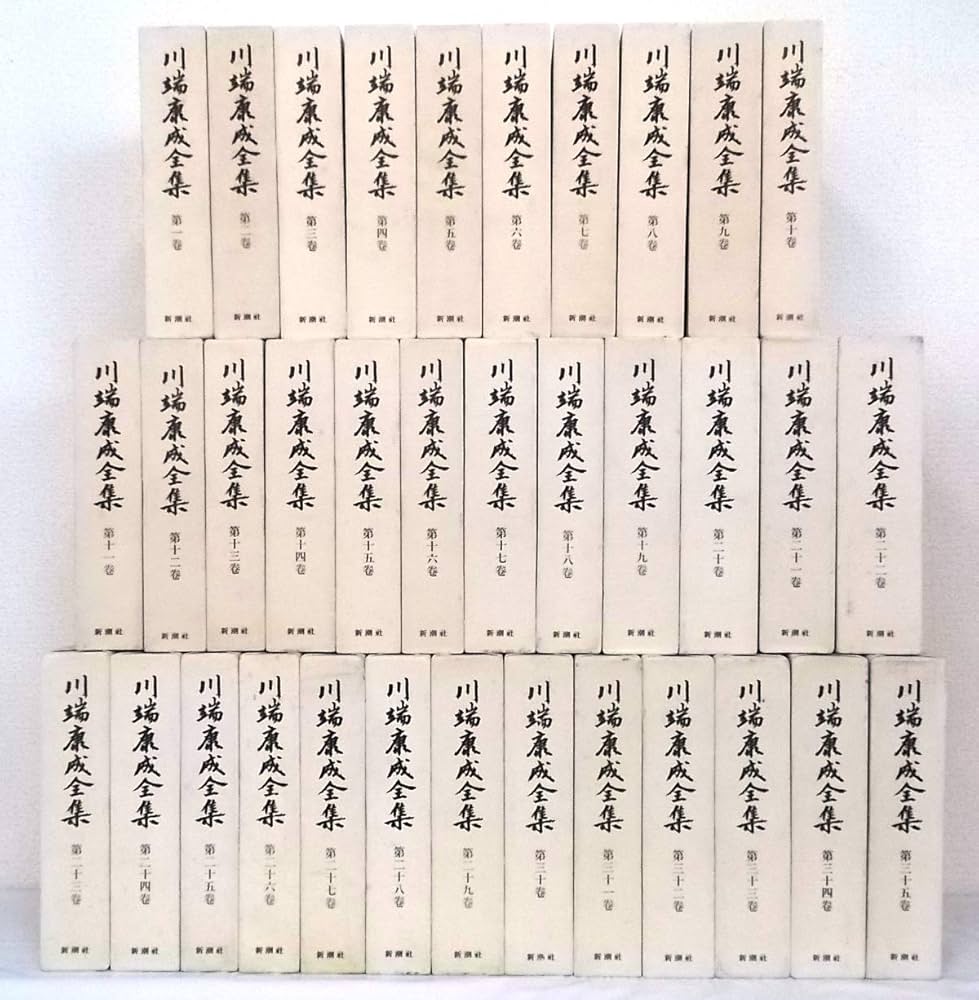 川端康成全集 第一卷 新潮社
川端康成全集 第二卷 新潮社
川端康成全集 第三卷 新潮社
川端康成全集 第四卷 新潮社
川端康成全集 第五卷 新潮社
川端康成全集 第六卷 新潮社
川端康成全集 第七卷 新潮社
川端康成全集 第八卷 新潮社
川端康成全集 第九卷 新潮社
川端康成全集 第十卷 新潮社
川端康成全集 第十一卷 新潮社
川端康成全集 第十二卷 新潮社
川端康成全集 第十三卷 新潮社
川端康成全集 第十四卷 新潮社
川端康成全集 第十五卷 新潮社
川端康成全集 第十六卷 新潮社
川端康成全集 第十七卷 新潮社
川端康成全集 第十八卷 新潮社
川端康成全集 第十九卷 新潮社
川端康成全集 第二十卷 新潮社
川端康成全集 第二十一卷 新潮社
川端康成全集 第二十二卷 新潮社
川端康成全集 第二十三卷 新潮社
川端康成全集 第二十四卷 新潮社
川端康成全集 第二十五卷 新潮社
川端康成全集 第二十六卷 新潮社
川端康成全集 第二十七卷 新潮社
川端康成全集 第二十八卷 新潮社
川端康成全集 第二十九卷 新潮社
川端康成全集 第三十卷 新潮社
川端康成全集 第三十一卷 新潮社
川端康成全集 第三十二卷 新潮社
川端康成全集 第三十三卷 新潮社
川端康成全集 第三十四卷 新潮社
川端康成全集 第三十五卷 新潮社